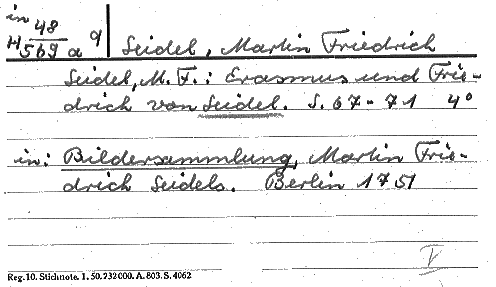 in
48
H569 a q Seidel, Martin Friedrich
Seidel, M. F.: Erasmus und Frie-
drich von Seidel. S. 67-71 4°
in: Bildersammlung, Martin Frie-
drich Seidels. Berlin 1751
V
Reg.10. Stichnote. 1. 50. 232000. A. 803. S. 4062